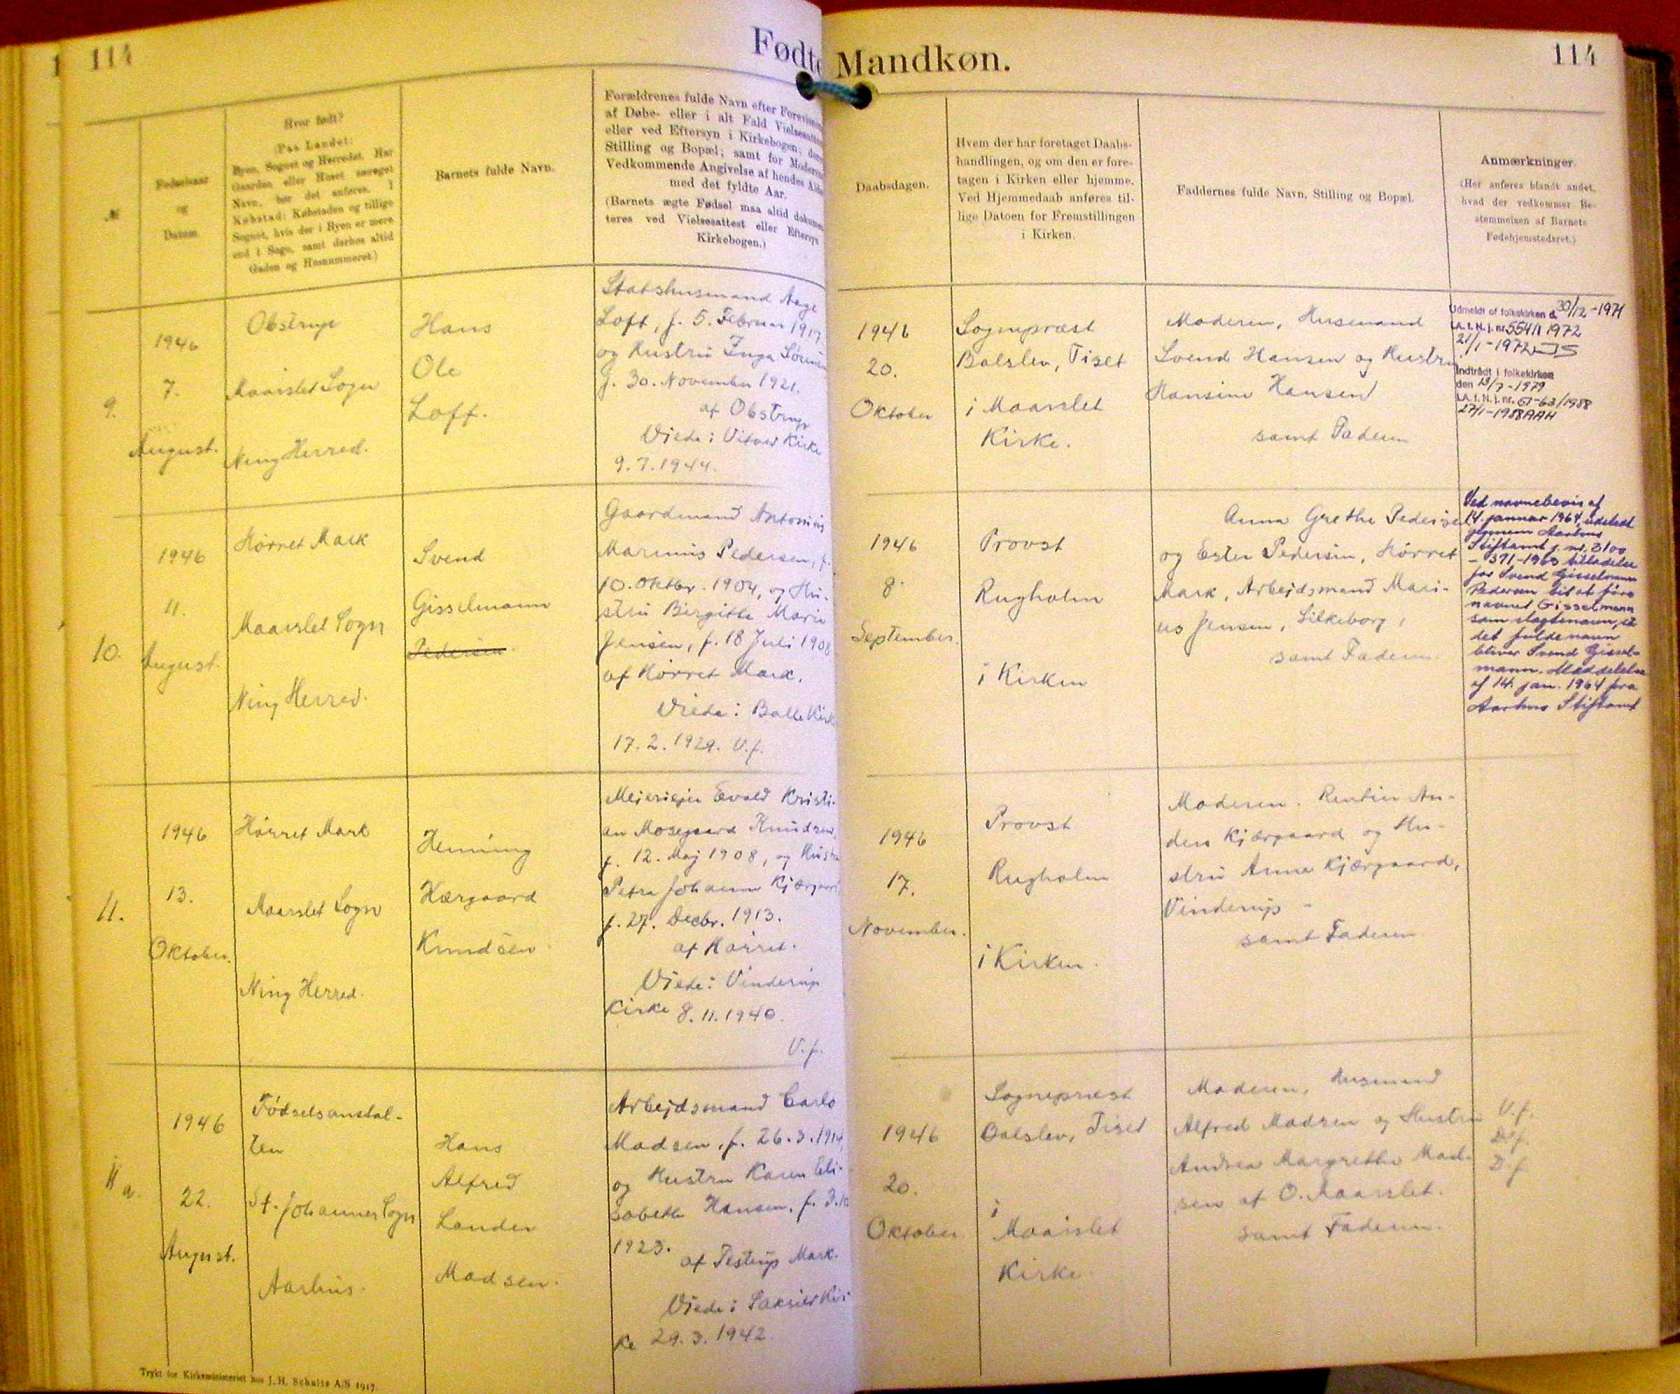 114
Fødte
Mandkøn.
114
№
Fødselsaar
og
Datum.
Hvor født?
(Paa Landet:
Byen, Sognet og Herredet. Har
Gaarden eller Huset særeget
Navn, bør det anføres. I
Købstad: Købstaden og tillige
Sognet, hvis der i Byen er mere
end 1 Sogn, samt derhos altid
Gaden og Husnummeret.)
Barnets fulde Navn.
Forældrenes fulde Navn efter
af Døbe- eller i alt Fald
eller ved Eftersyn i Kirkebogen;
Stilling og Bopæl; samt for
Vedkommende Angivelse af hendes
med det fyldte Aar.
(Barnets ægte Fødsel maa altid
teres ved Vielsesattest eller Eftersyn
Kirkebogen.)
Daabsdagen.
Hvem der har foretaget Daabs-
handlingen, og om den er fore-
tagen i Kirken eller hjemme.
Ved Hjemmedaab anføres til-
lige Datoen for Fremstillingen
i Kirken.
Faddernes fulde Navn, Stilling og Bopæl.
Anmærkninger.
(Her anføres blandt andet,
hvad der vedkommer Be-
stemmelsen af Barnets
Fødehjemstedsret.)
9.
1946
7.
August.
Obstrup
Maarslet Sogn
Ning Herred.
Hans
Ole
Loft.
Statshusmand Aage
Loft, f. 5. Februar 1917
og Hustru Inga
f. 30. November 1921.
af Obstrup
Viede i Vitved Kirke
9.7.1944.
1946
20.
Oktober
Sognepræst
Balslev, Tiset
i Maarslet
Kirke.
Moderen, Husmand
Svend Hansen og Hustru
Hansine Hansen
samt Faderen
Udmeldt af folkekirken d. 30/12-1971
I.A.f.N.j.nr. 1972
21/1-1972
Indtrådt i folkekirken
den 13/7-1979
I.A.f.N.j.nr. 61-63/1988
27/1-1988 AAH
10.
1946
11.
August.
Hørret Mark
Maarslet Sogn
Ning Herred.
Svend
Gisselmann
Pedersen.
Gaardmand Antonius
Marinus Pedersen, f.
10. Oktbr. 1904, og Hu-
stru Birgitte Marie
Jensen, f. 18 Juli 1908
af Hørret Mark.
Viede i Balle Kirke
17.2.1929. V.f.
1946
8
September.
Provst
Rugholm
i Kirken
Anna Grethe Pedersen
og Ester Pedersen, Hørret
Mark, Arbejdsmand Mari-
us Jensen, Silkeborg,
samt Faderen.
Ved navnebevis af
14. januar 1964, udstedt
gennem Aarhus
Stiftamt j. nr. 3100
- 371-1963 tilladelse
for Svend Gisselmann
Pedersen til at føre
navnet Gisselmann
som slægtsnavn, så
det fulde navn
bliver Svend Gissel-
mann. Meddelelse
af 14. jan. 1964 fra
Aarhus Stiftamt
11.
1946
13.
Oktober.
Hørret Mark
Maarslet Sogn
Ning Herred.
Henning
Kærgaard
Knudsen.
Mejeriejer Evald Kristi-
an Mosegaard Knudsen,
f. 12. Maj 1908, og Hustru
Petra Johanne Kjærgaard
f. 27. Decbr. 1913.
af Hørret.
Viede i Vinderup
Kirke 8.11.1940.
V.f.
1946
17.
November.
Provst
Rugholm
i Kirken.
Moderen. Rentier An-
ders Kjærgaard og Hu-
stru Anna Kjærgaard,
Vinderup -
samt Faderen
11 a.
1946
22.
August.
Fødselsanstal-
ten
St. Johannes Sogn
Aarhus.
Hans
Alfred
Lander
Madsen.
Arbejdsmand Carlo
Madsen, f. 26.3.1914,
og Hustru Karen Eli-
sabeth Hansen, f. 3.10
1923.
af Testrup Mark.
Viede i Saksild Kir-
ke 29.3.1942.
1946
20.
Oktober.
Sognepræst
Balslev, Tiset
i
Maarslet
Kirke.
Moderen, Husmand
Alfred Madsen og Hustru
Andrea Margrethe Mad-
sen af O. Maarslet.
samt Faderen.
V.f.
D.f.
D.f.
Trykt for Kirkeministeriet hos J. H. Schultz A/S 1917.